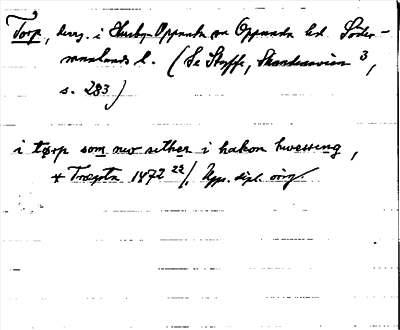 Torp, herrg. i Husby-Oppunda sn Oppunda hd. Söder-
manlands l. (Se Styffe, Skandinavien 3,
s. 283)
i tørp som nw sither i hakon hwessing,
* Træsta 1472 22/. Upps. dipl. orig.